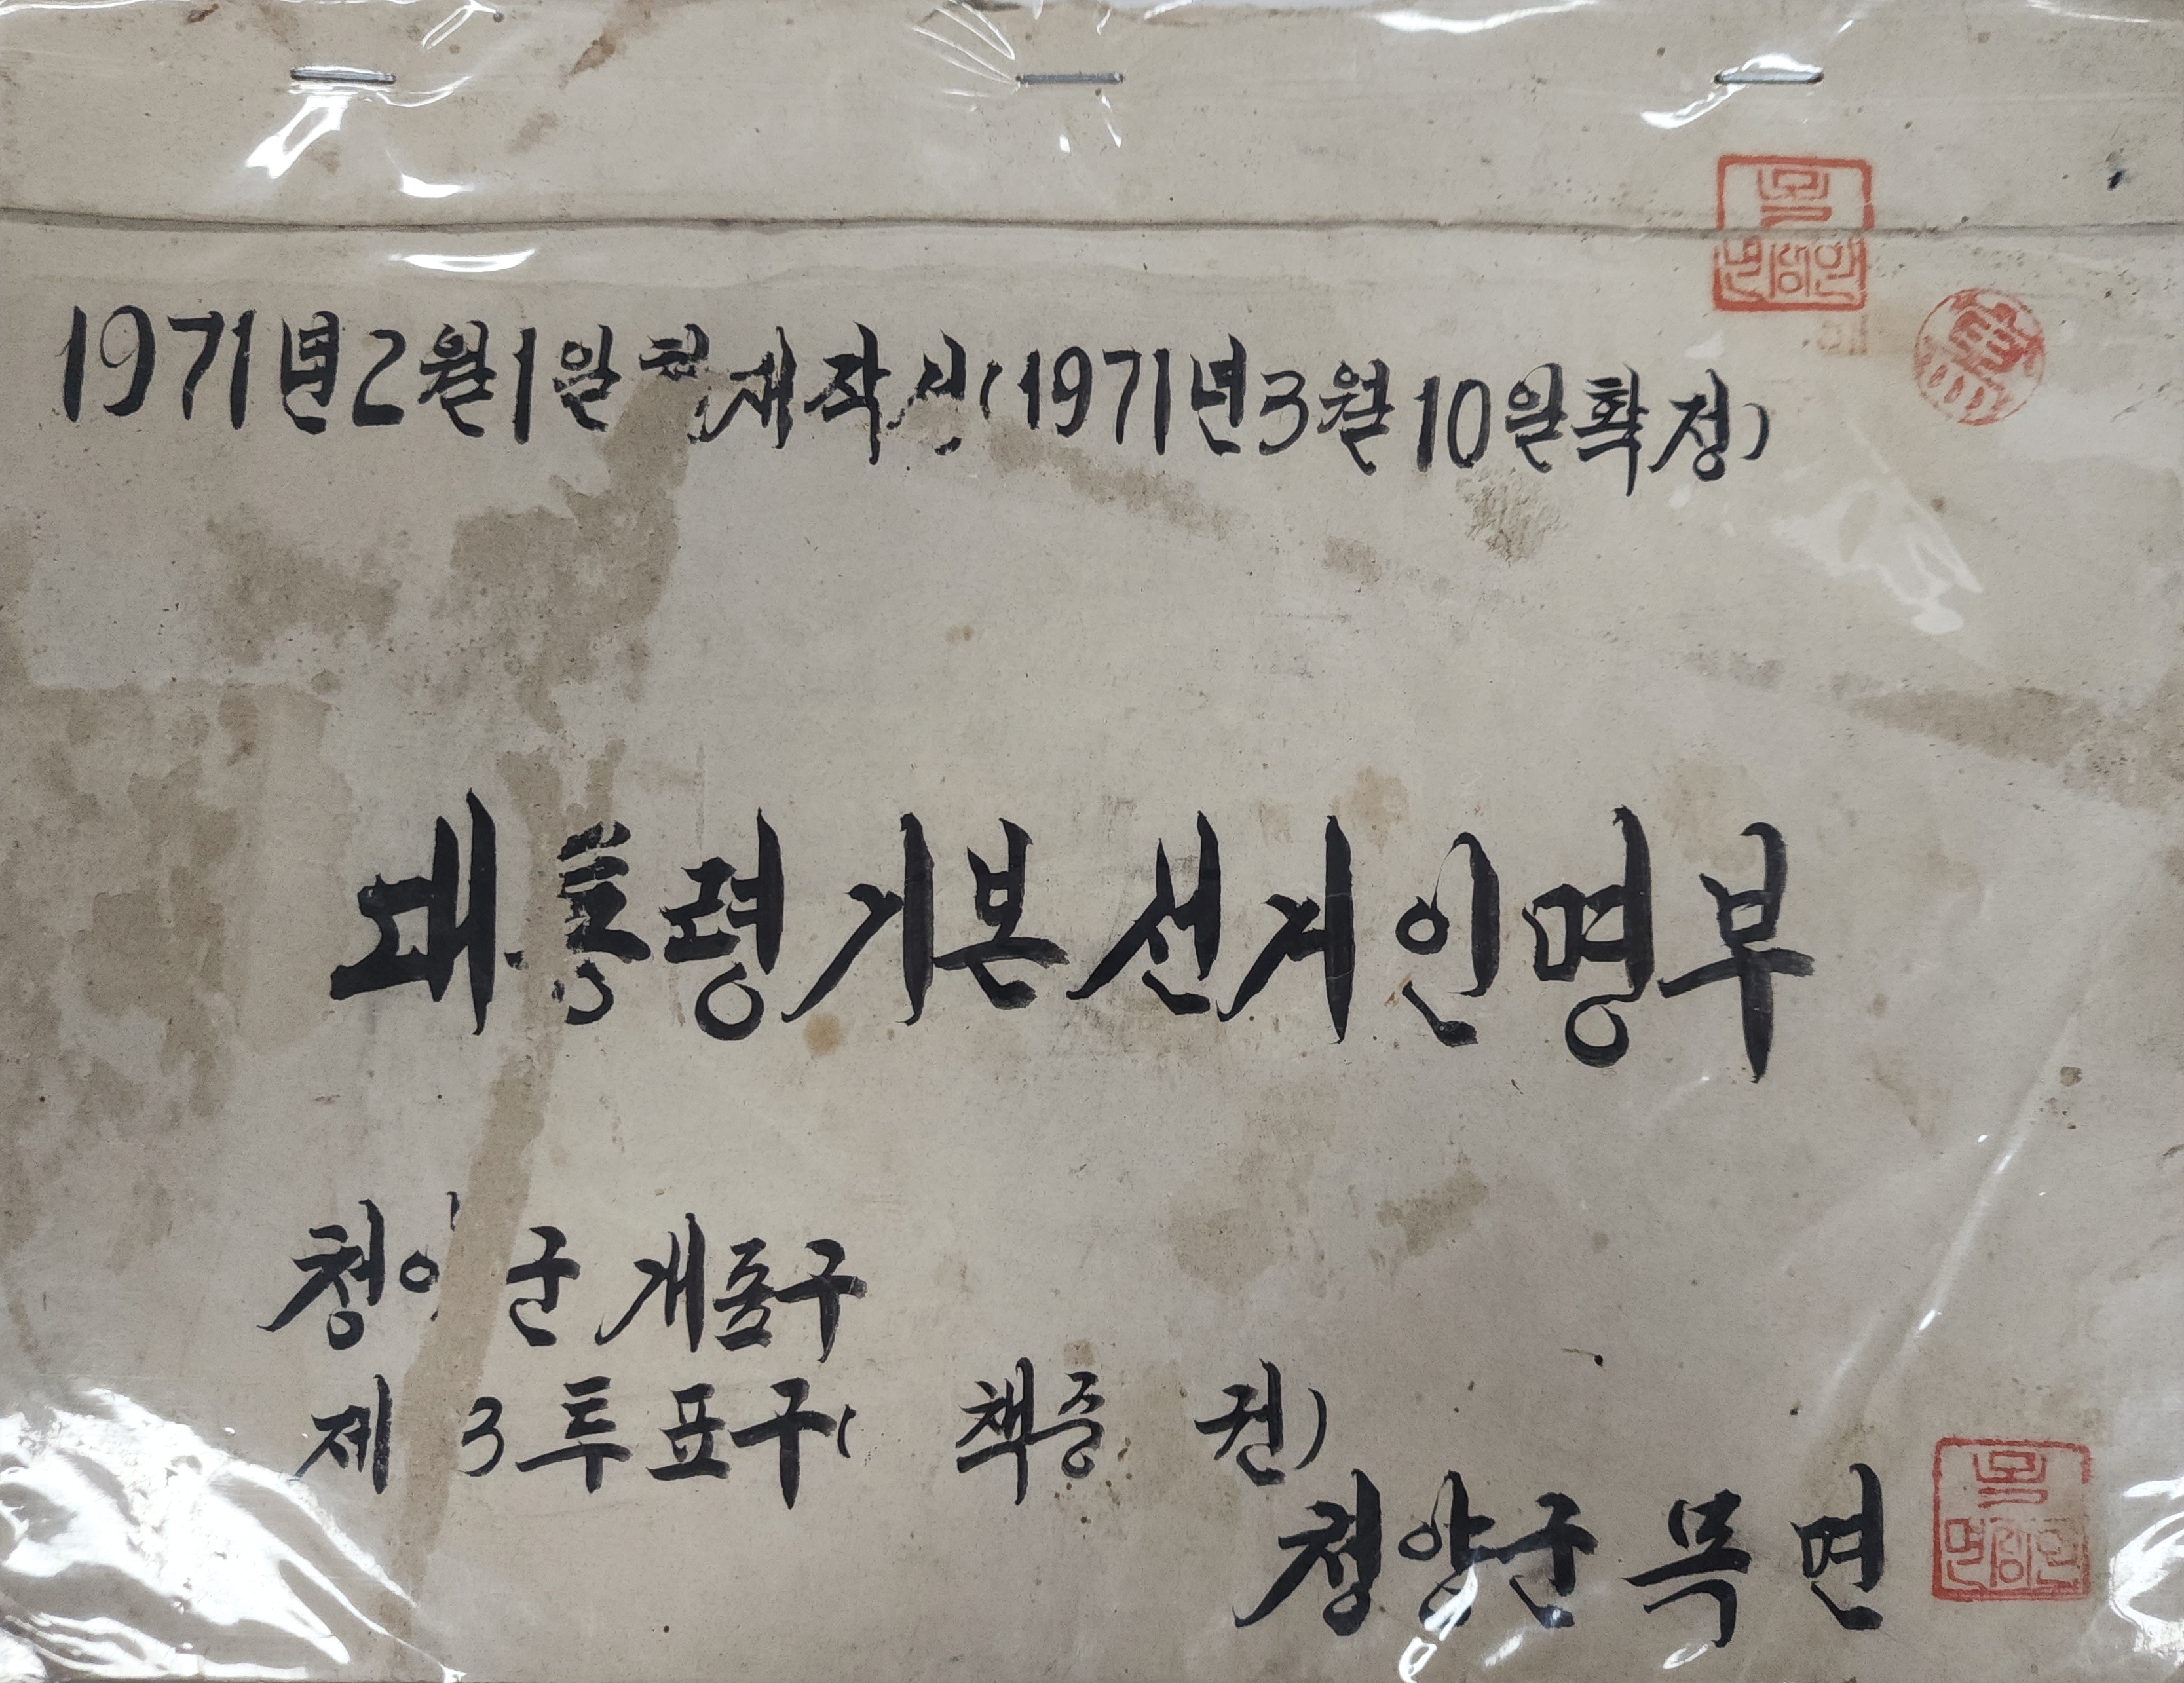 목
면장인
1971년2월1일현재작성(1971년3월10일확정)
대통령기본선거인명부
청양군개표구
제 3투표구( 책중 권)
청양군 목면
목
면장인